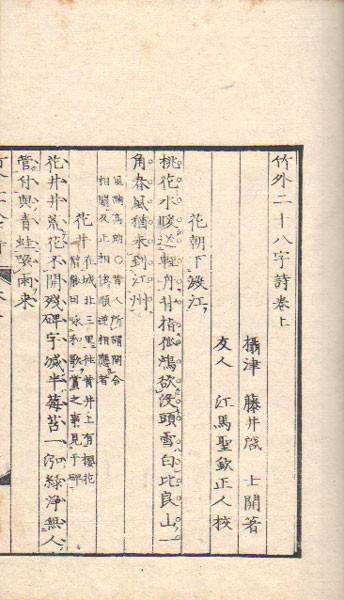 竹外二十八字詩卷上
攝津 藤井啓 士開著
友人 江馬聖欽正人校
花朝下澱江
桃花水暖送輕舟背指孤鴻欲沒頭雪白比良山一
角春風猶未到江州
風調高朗〇昔人所謂開合
相關反正相依順逆相應者
花井 在城北三里往昔井上有櫻花
咏和歌賞之事見于碑
花井井荒花不開殘碑字滅半莓苔一泓綠淨無人
管付與青蛙喚雨來